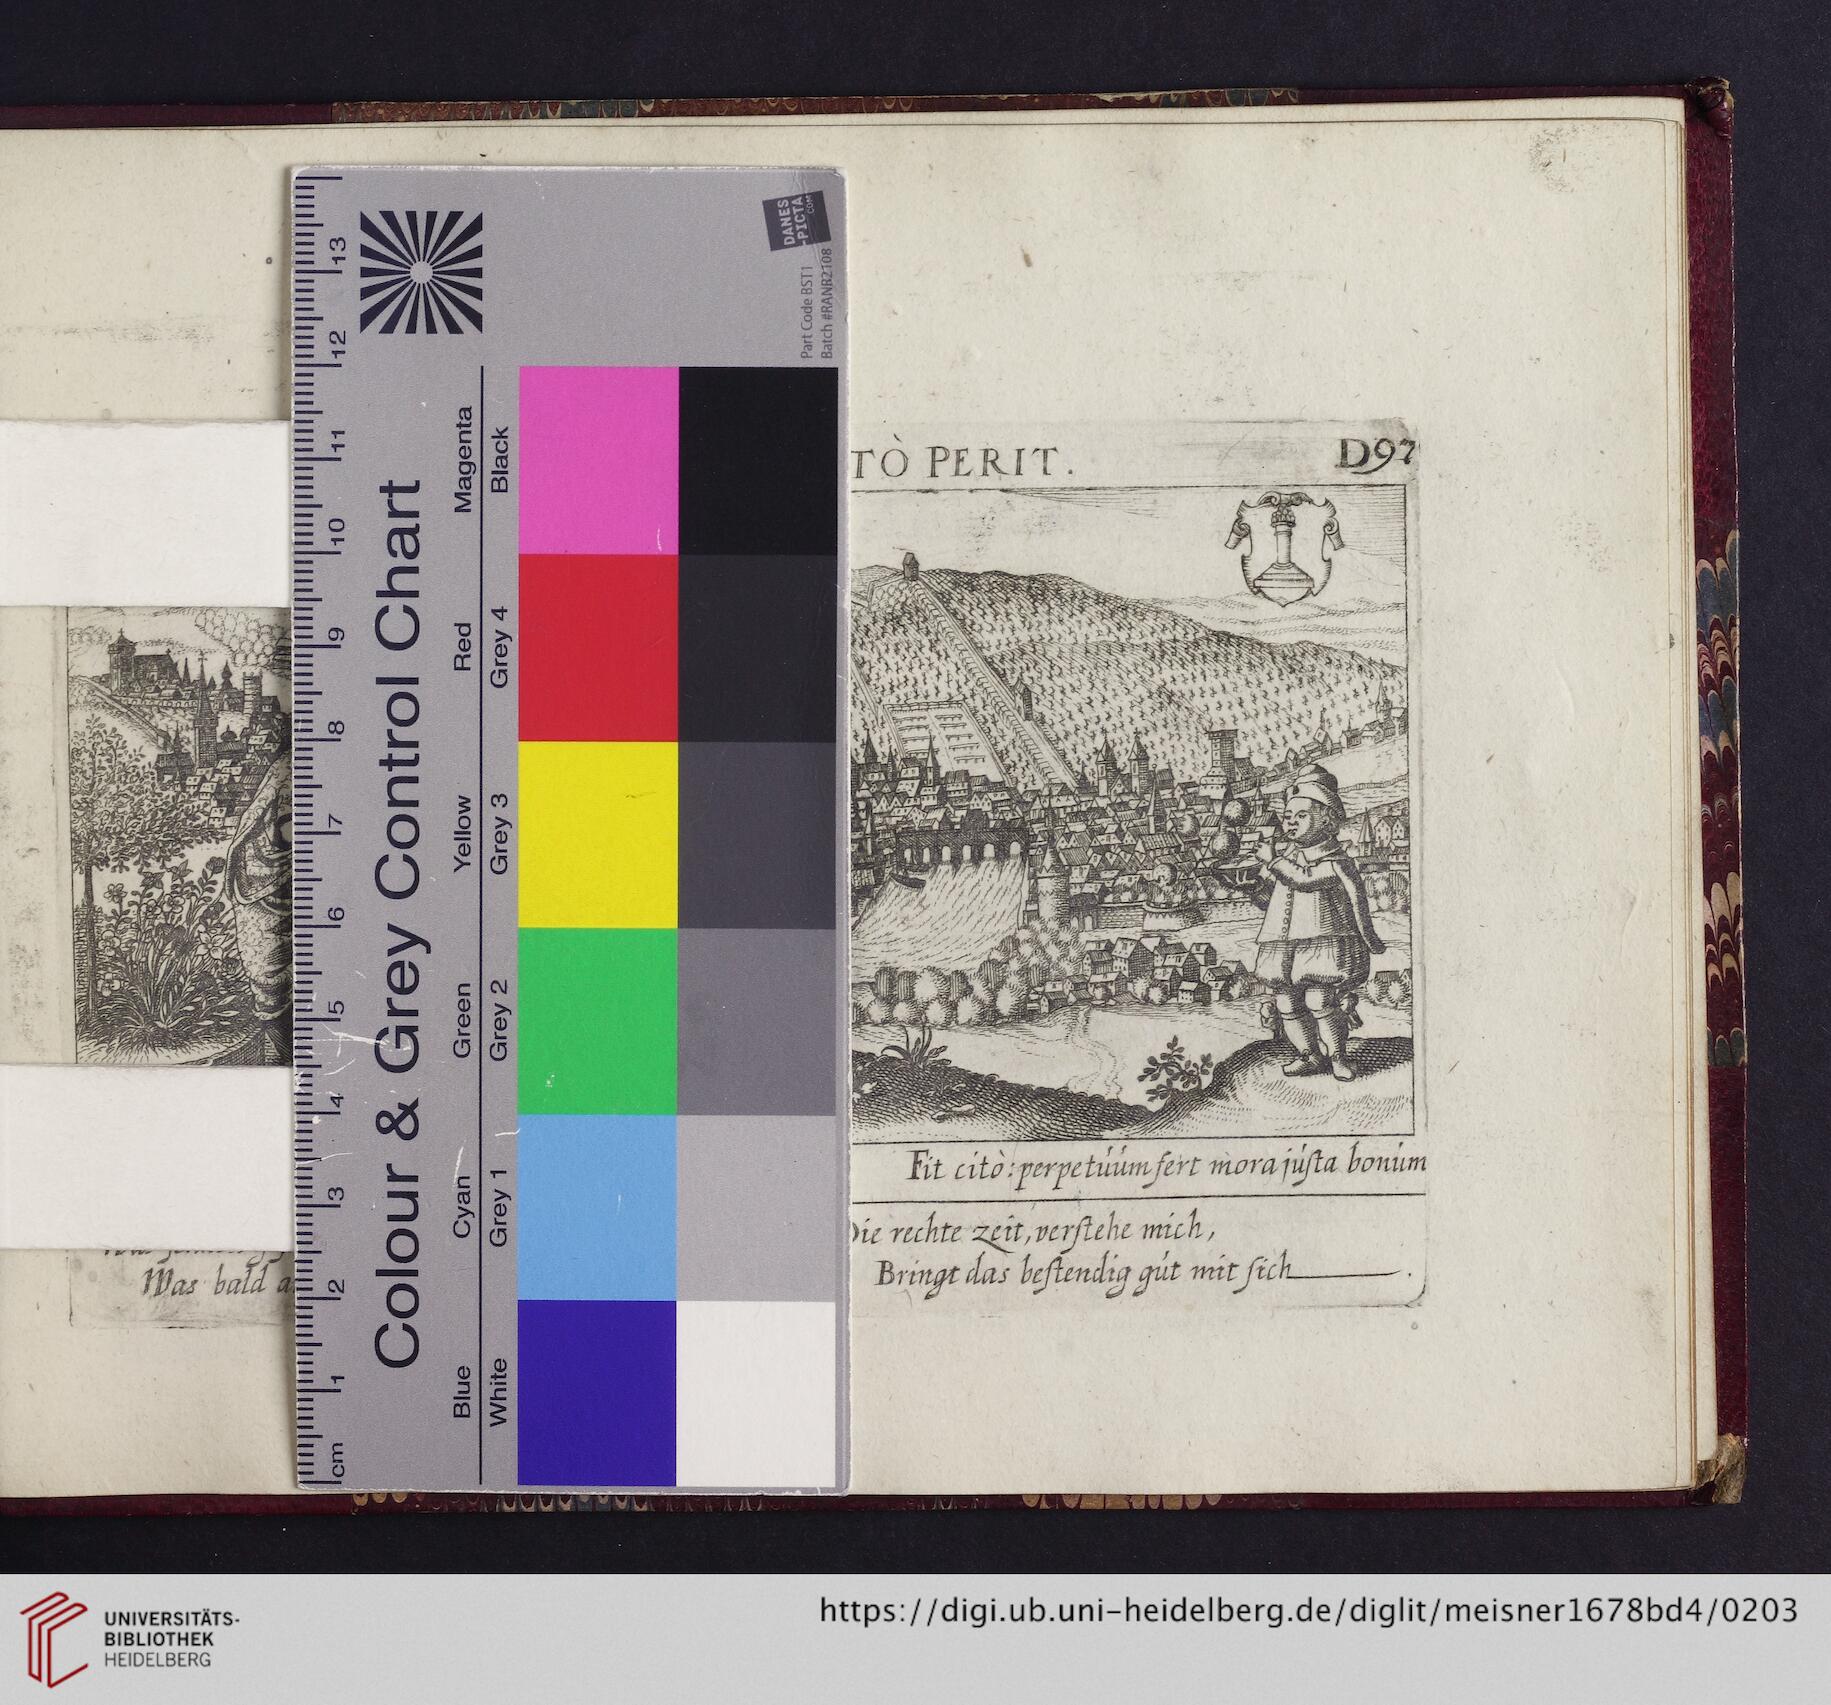 TÒ PERIT.
D97
Fit citò: perpetuum fert mora justa bonum
Die rechte zeit, verstehe mich,
Bringt das bestendig gut mit sich
Was bald a
Colour & Grey Control Chart
Magenta
Red
Yellow
Green
Cyan
Blue
Black
Grey 4
Grey 3
Grey 2
Grey 1
White
13
12
11
10
9
8
7
6
5
4
3
2
1
cm
DANES
-PICTA
.COM
Part Code BST1
Batch #RANB2108
UNIVERSITÄTS-
BIBLIOTHEK
HEIDELBERG
https://digi.ub.uni-heidelberg.de/diglit/meisner1678bd4/0203